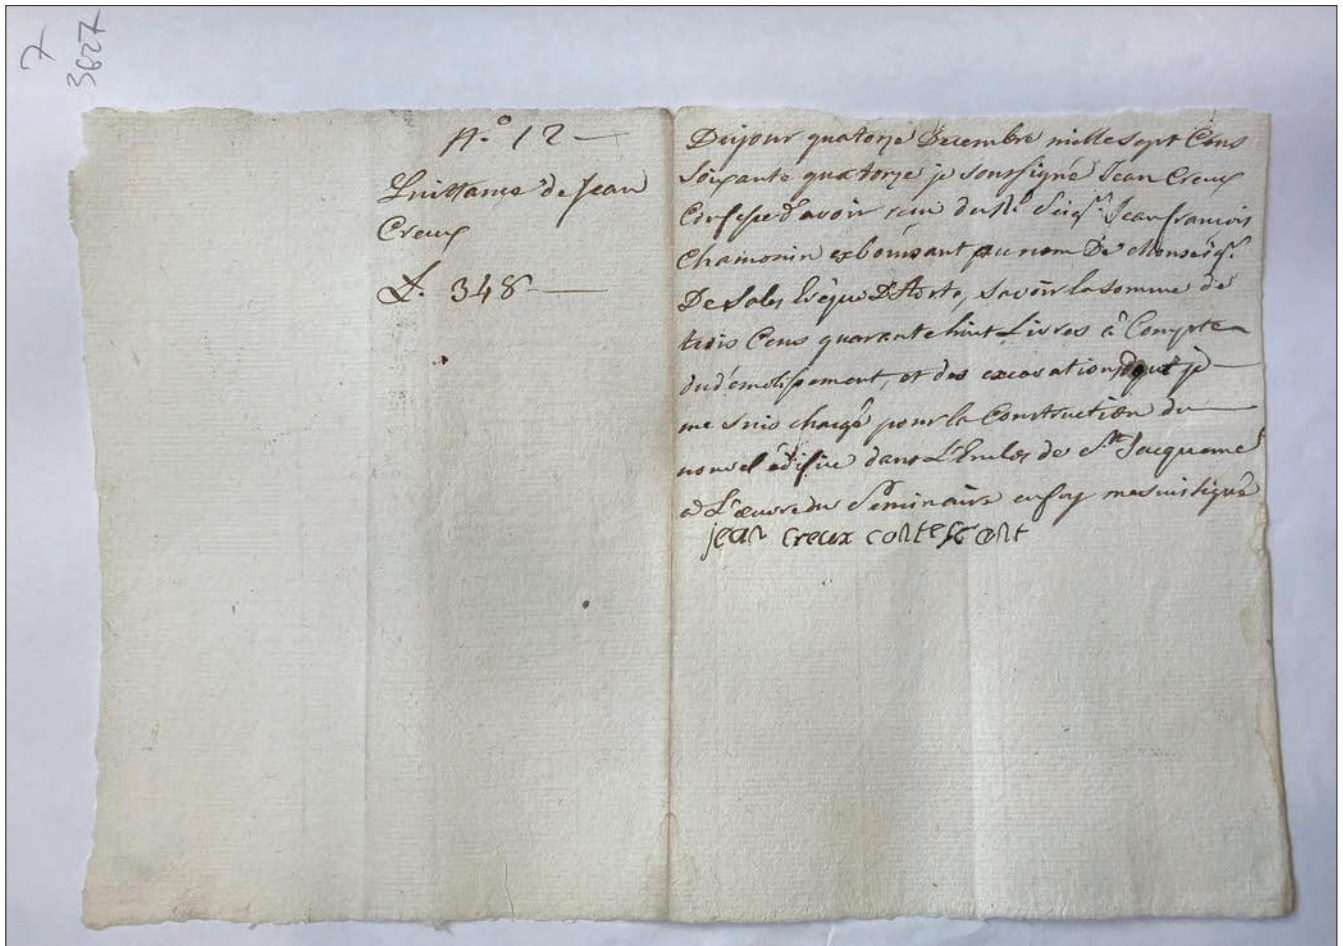 7
3627
N.º 12
Quittance de Jean
Creux
L. 348
Du jour quatorze Decembre mille sept Cens
soixante quatorze je soussigné Jean Creux
Confesse d'avoir reçu du Rd Seigr. Jean françois
Chamonin exboursant au nom De Monseigr.
De Sales Evêque D'Aoste, savoir la somme de
trois Cens quarante huit Livres à Compte
du demolissement, et des excavations dont je
me suis chargé pour la Construction du
nouvel édifice dans L'Enclos de St. Jacqueme
a L'œuvre du Seminaire en foy me suis signé
jean creux